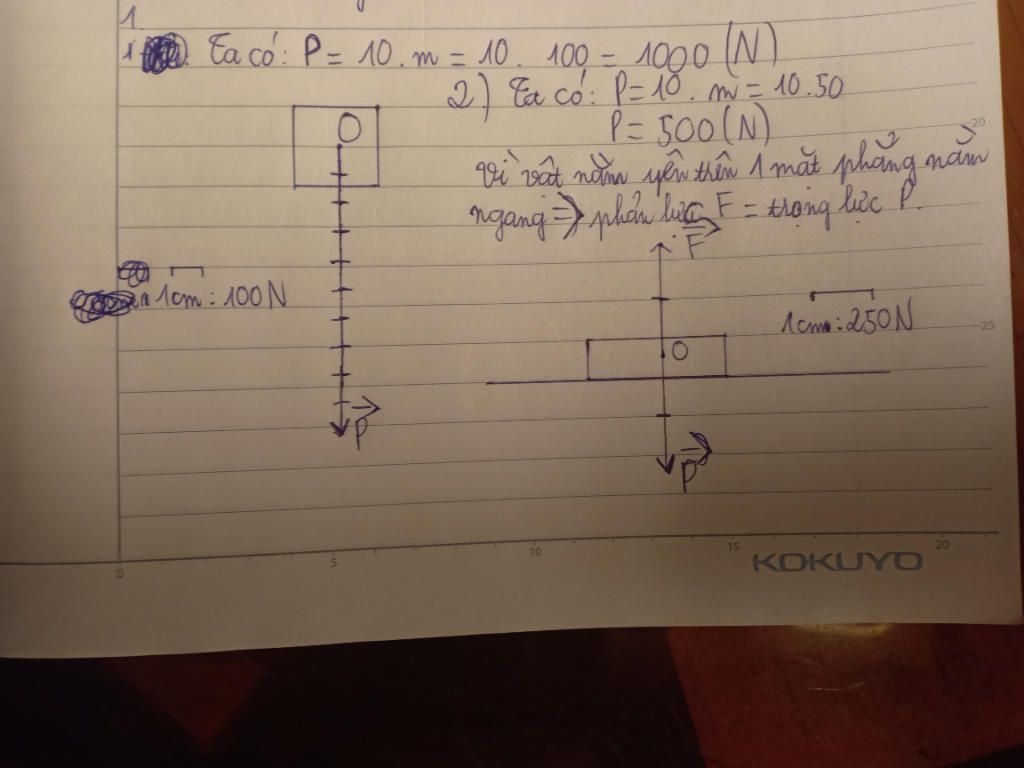 1.
Ta có: P = 10 . m = 10 . 100 = 1000 (N)
2) Ta có: P = 10 . m = 10 . 50
P = 500 (N)
Vì vật nằm yên trên 1 mặt phẳng nằm
ngang => phản lực F = trọng lực P.
O
1cm : 100 N
P
F
1cm : 250 N
O
P
20
25
0 5 10 15 20
KOKUYO